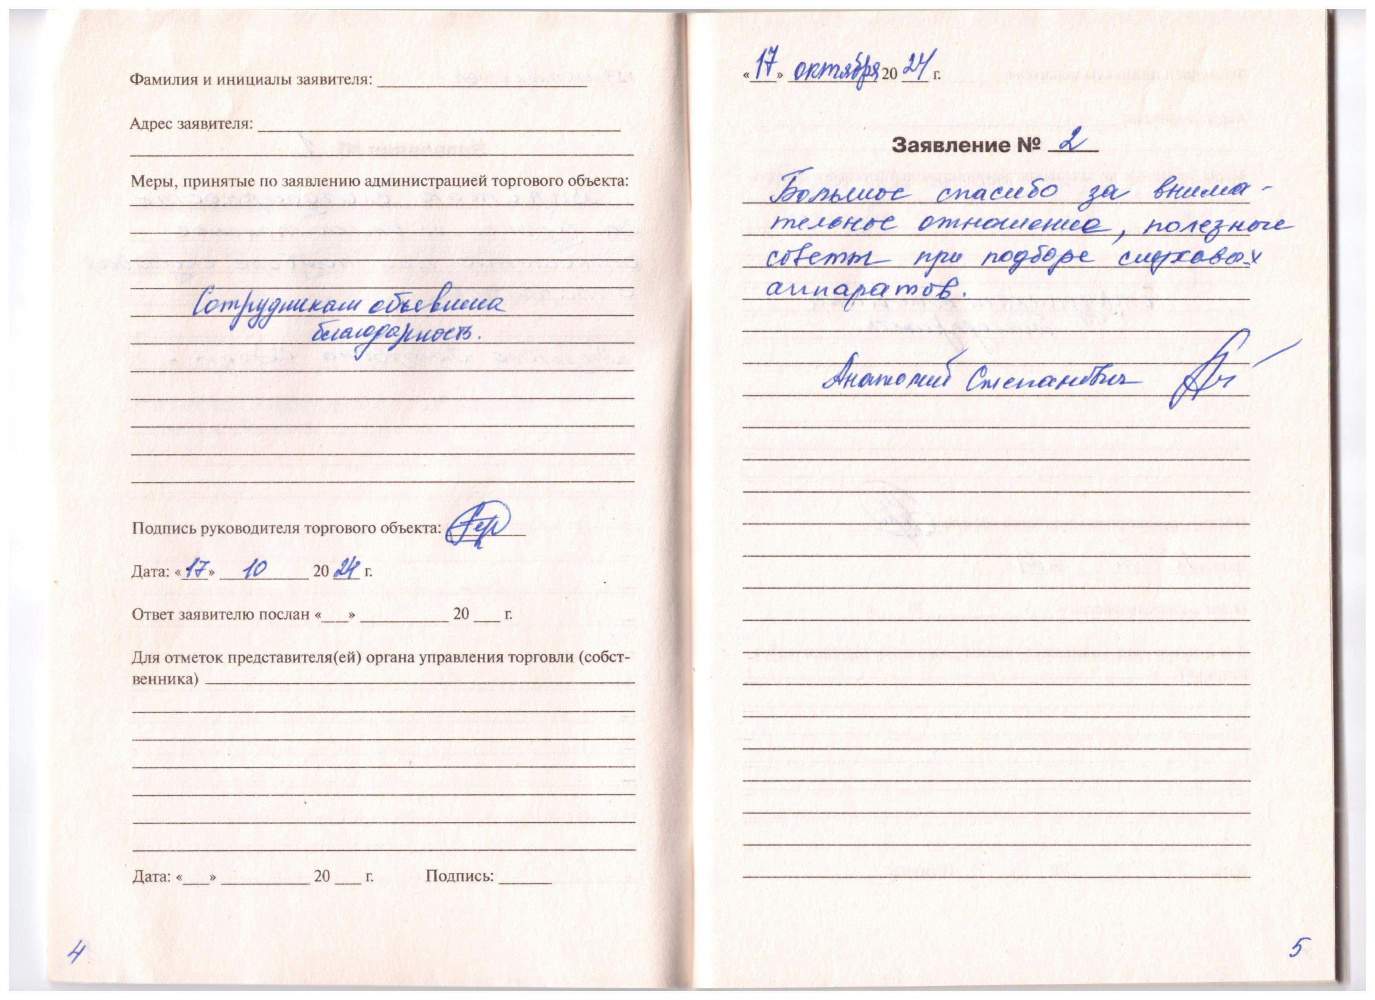 Фамилия и инициалы заявителя:
Адрес заявителя:
Меры, принятые по заявлению администрацией торгового объекта:
Сотрудникам объевлена
благодарность.
Подпись руководителя торгового объекта:
Дата: «17» 10 2024 г.
Ответ заявителю послан «___» ___ 20 ___ г.
Для отметок представителя(ей) органа управления торговли (собст-
венника)
Дата: «___» ___ 20 ___ г. Подпись:
4
«17» октября 2024 г.
Заявление № 2
Большое спасибо за внима-
тельное отношение, полезные
советы при подборе слуховых
аппаратов.
Анатолий Степанович
5